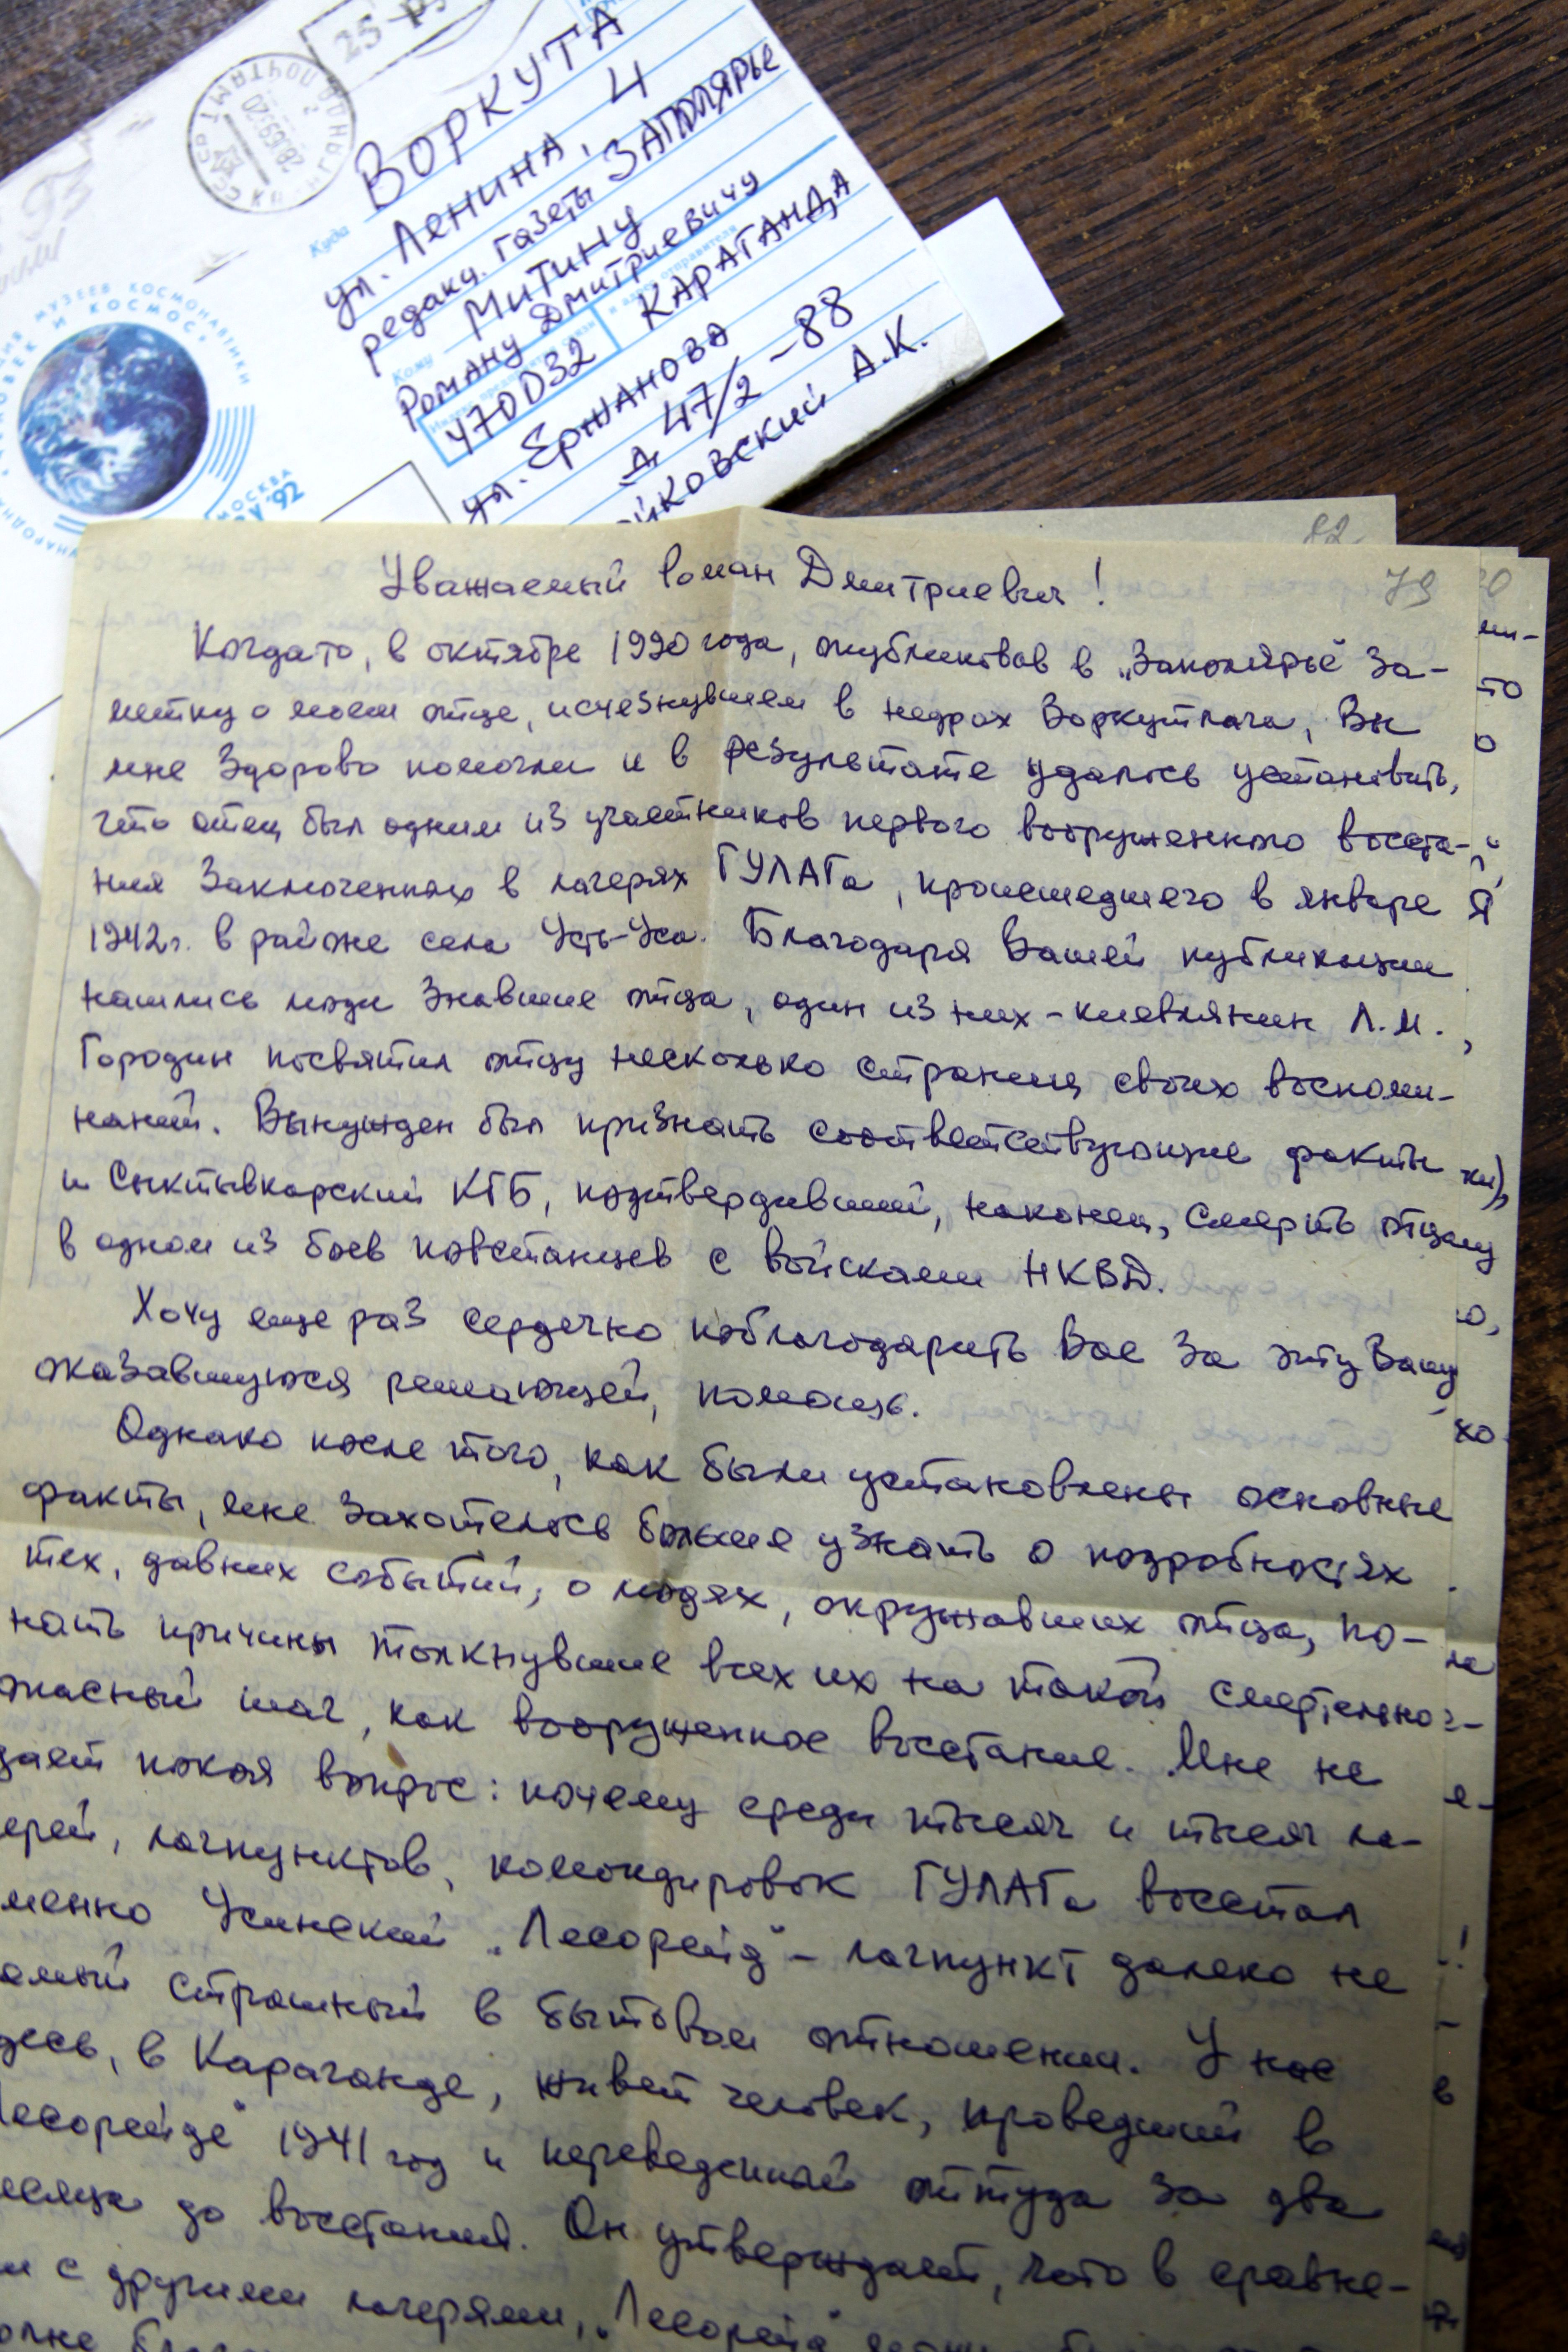 25
ПОЧТАМТ
Куда
ВОРКУТА
ул. Ленина, 4
редакц. газеты ЗАПОЛЯРЬЕ
Кому
Митину
Роману Дмитриевичу
470032
КАРАГАНДА
ул. Ержанова
д 47/2 -88
йковский А.К.
МУЗЕЕВ КОСМОНАВТИКИ
ЧЕЛОВЕК И КОСМОС
МОСКВА
'92
82
79
Уважаемый Роман Дмитриевич!
Когда-то, в октябре 1990 года, опубликовав в „Заполярье" за-
метку о моем отце, исчезнувшем в недрах Воркутлага, Вы
мне здорово помогли и в результате удалось установить,
что отец был одним из участников первого вооруженного восста-
ния заключенных в лагерях ГУЛАГа, происшедшего в январе
1942г. в районе села Усть-Уса. Благодаря Вашей публикации
нашлись люди знавшие отца, один из них - киевлянин Л.М.
Городин посвятил отцу несколько страниц своих воспоми-
наний. Вынужден был признать соответствующие факты
и Сыктывкарский КГБ, подтвердивший, наконец, смерть отца
в одном из боев повстанцев с войсками НКВД.
Хочу еще раз сердечно поблагодарить Вас за эту Вашу
оказавшуюся решающей, помощь.
Однако после того, как были установлены основные
факты, мне захотелось больше узнать о подробностях
тех, давних событий, о людях, окружавших отца, по-
нять причины толкнувшие всех их на такой смертельно
опасный шаг, как вооруженное восстание. Мне не
дает покоя вопрос: почему среди тысяч и тысяч ла-
ерей, лагпунктов, командировок ГУЛАГа восстал
менно Усинский „Лесорейд" - лагпункт далеко не
амый страшный в бытовом отношении. У нас
десь, в Караганде, живет человек, проведший в
Лесорейде" 1941 год и переведенный оттуда за два
месяца до восстания. Он утверждает, что в сравне-
и с другими лагерями, „Лесорейд"